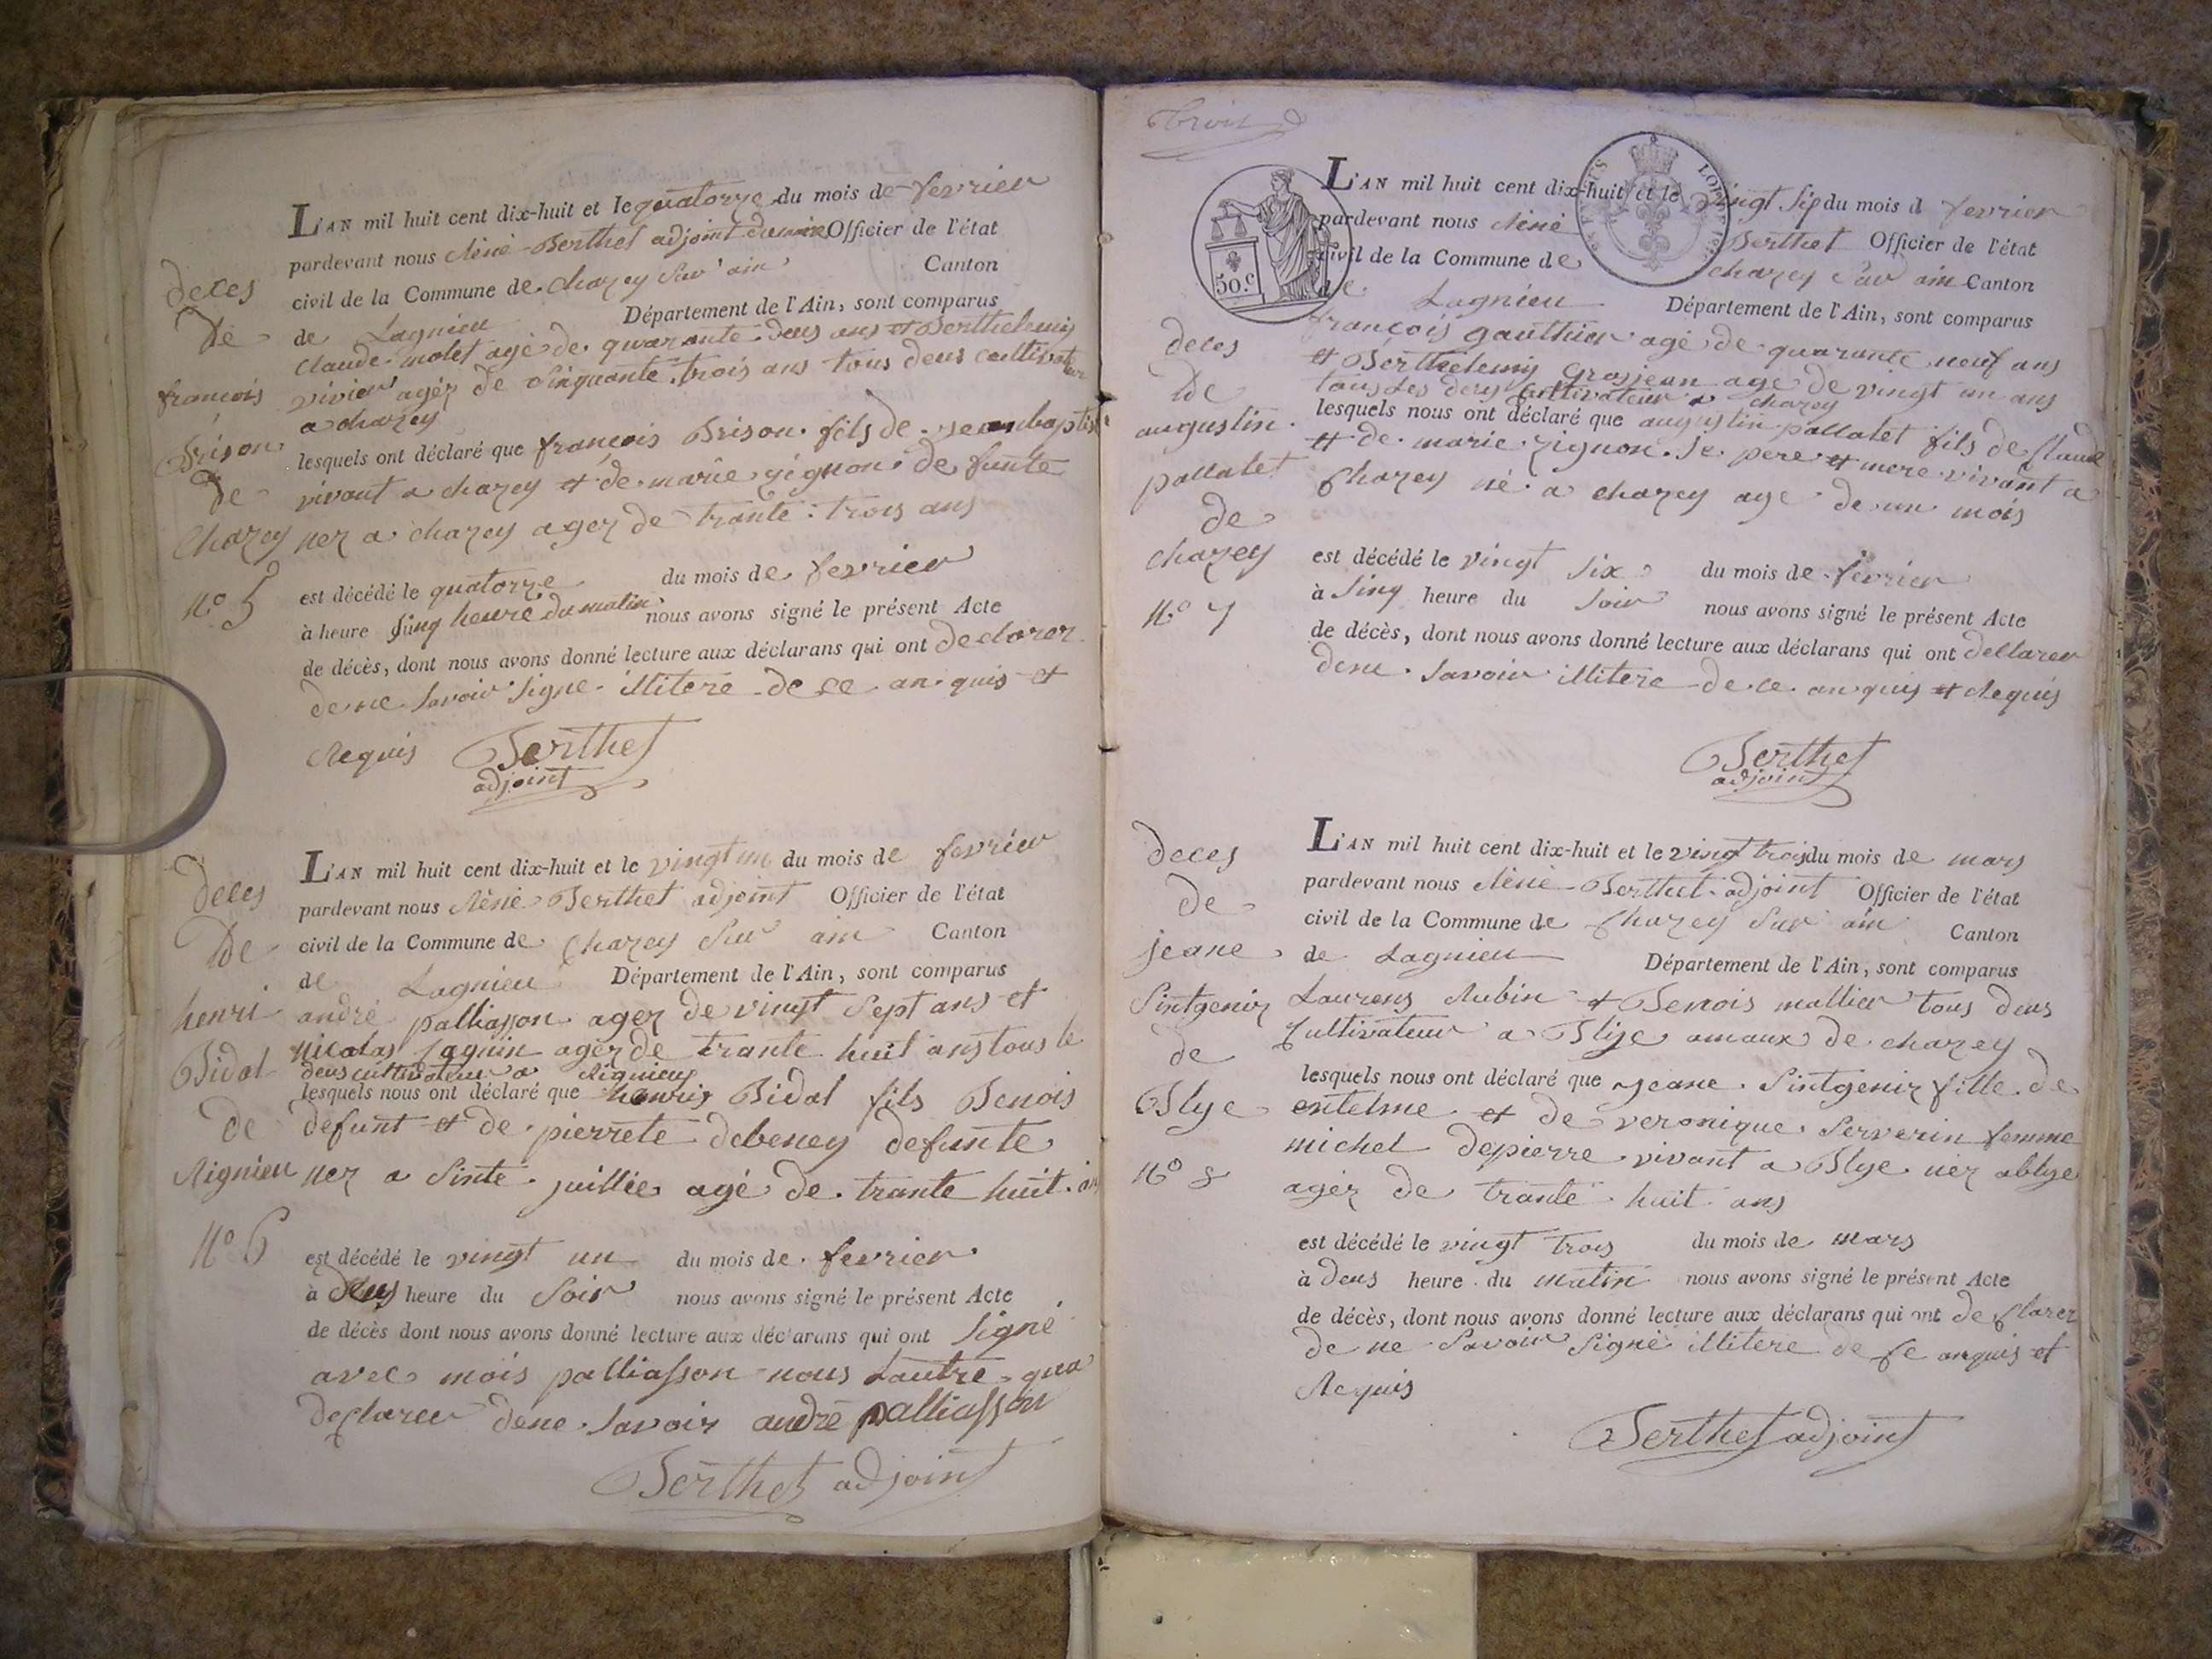 deces
De
francois
Brison
De
Chazey
N.o 5
L'AN mil huit cent dix-huit et le quatorze du mois de fevrier
pardevant nous Réné Berthet adjoint du maire Officier de l'état
civil de la Commune de chazey sur ain Canton
de Lagnieu Département de l'Ain, sont comparus
Claude molet agé de quarante deus ans et Berthelemy
vivier agéz de sinquante trois ans tous deus cultivateur
a chazey
lesquels ont déclaré que françois Brison fils de jean baptiste
vivant a chazey et de marie gignon de funte
nez a chazey agez de trante trois ans
est décédé le quatorze du mois de fevrier
à heure sinq heure du matin nous avons signé le présent Acte
de décès, dont nous avons donné lecture aux déclarans qui ont declarer
de ne savoir signe illitere de ce anquis et
Requis Berthet
adjoint
deces
De
henri
Bidal
de
Rignieu
N.o 6
L'AN mil huit cent dix-huit et le vingt un du mois de fevrier
pardevant nous Réné Berthet adjoint Officier de l'état
civil de la Commune de Chazey sur ain Canton
de Lagnieu Département de l'Ain, sont comparus
andré palliasson agez de vingt sept ans et
nicolas agéz de trante huit ans tous le
deus cultivateur a Rignieu
lesquels nous ont déclaré que henris Bidal fils Benois
defunt et de pierrete debeney defunte
nez a sinte juillie agé de trante huit an
est décédé le vingt un du mois de fevrier
à deus heure du soir nous avons signé le présent Acte
de décès dont nous avons donné lecture aux déclarans qui ont signé
avec mois palliasson nous Lautre qua
declarer de ne savoir andré palliasson
Berthet adjoint
trois
50.c
L'AN mil huit cent dix-huit et le vingt sip du mois d fevrier
pardevant nous Réné Berthet Officier de l'état
civil de la Commune de chazey sur ain Canton
de Lagnieu Département de l'Ain, sont comparus
deces
De
augustin
pallatet
de
chazey
N.o 7
françois gauthier agé de quarante neuf ans
et Berthelemy grosjean agé de vingt un ans
tous les deus cultivateur a chazey
lesquels nous ont déclaré que augustin pallatet fils de Claude
et de marie gignon se pere et mere vivant a
Chazey né a chazey age de un mois
est décédé le vingt six du mois de fevrier
à sinq heure du soir nous avons signé le présent Acte
de décès, dont nous avons donné lecture aux déclarans qui ont dellarer
dene savoir illitere de ce anquis et Requis
Berthet
adjoint
deces
de
jeane
Sintgeniz
de
Blye
N.o 8
L'AN mil huit cent dix-huit et le vingt trois du mois de mars
pardevant nous Réné Berthet adjoint Officier de l'état
civil de la Commune de Chazey sur ain Canton
de Lagnieu Département de l'Ain, sont comparus
Laurens Aubin et Benois mallier tous deus
Cultivateur a Blye amaux de chazey
lesquels nous ont déclaré que jeane Sintgeniz fille de
entelme et de veronique Serverin femme
michel depierre vivant a Blye nez ablye
agéz de trante huit ans
est décédé le vingt trois du mois de mars
à deus heure du matin nous avons signé le présent Acte
de décès, dont nous avons donné lecture aux déclarans qui ont declarez
de ne savoir signé illitere de ce anquis et
Requis
Berthet adjoint